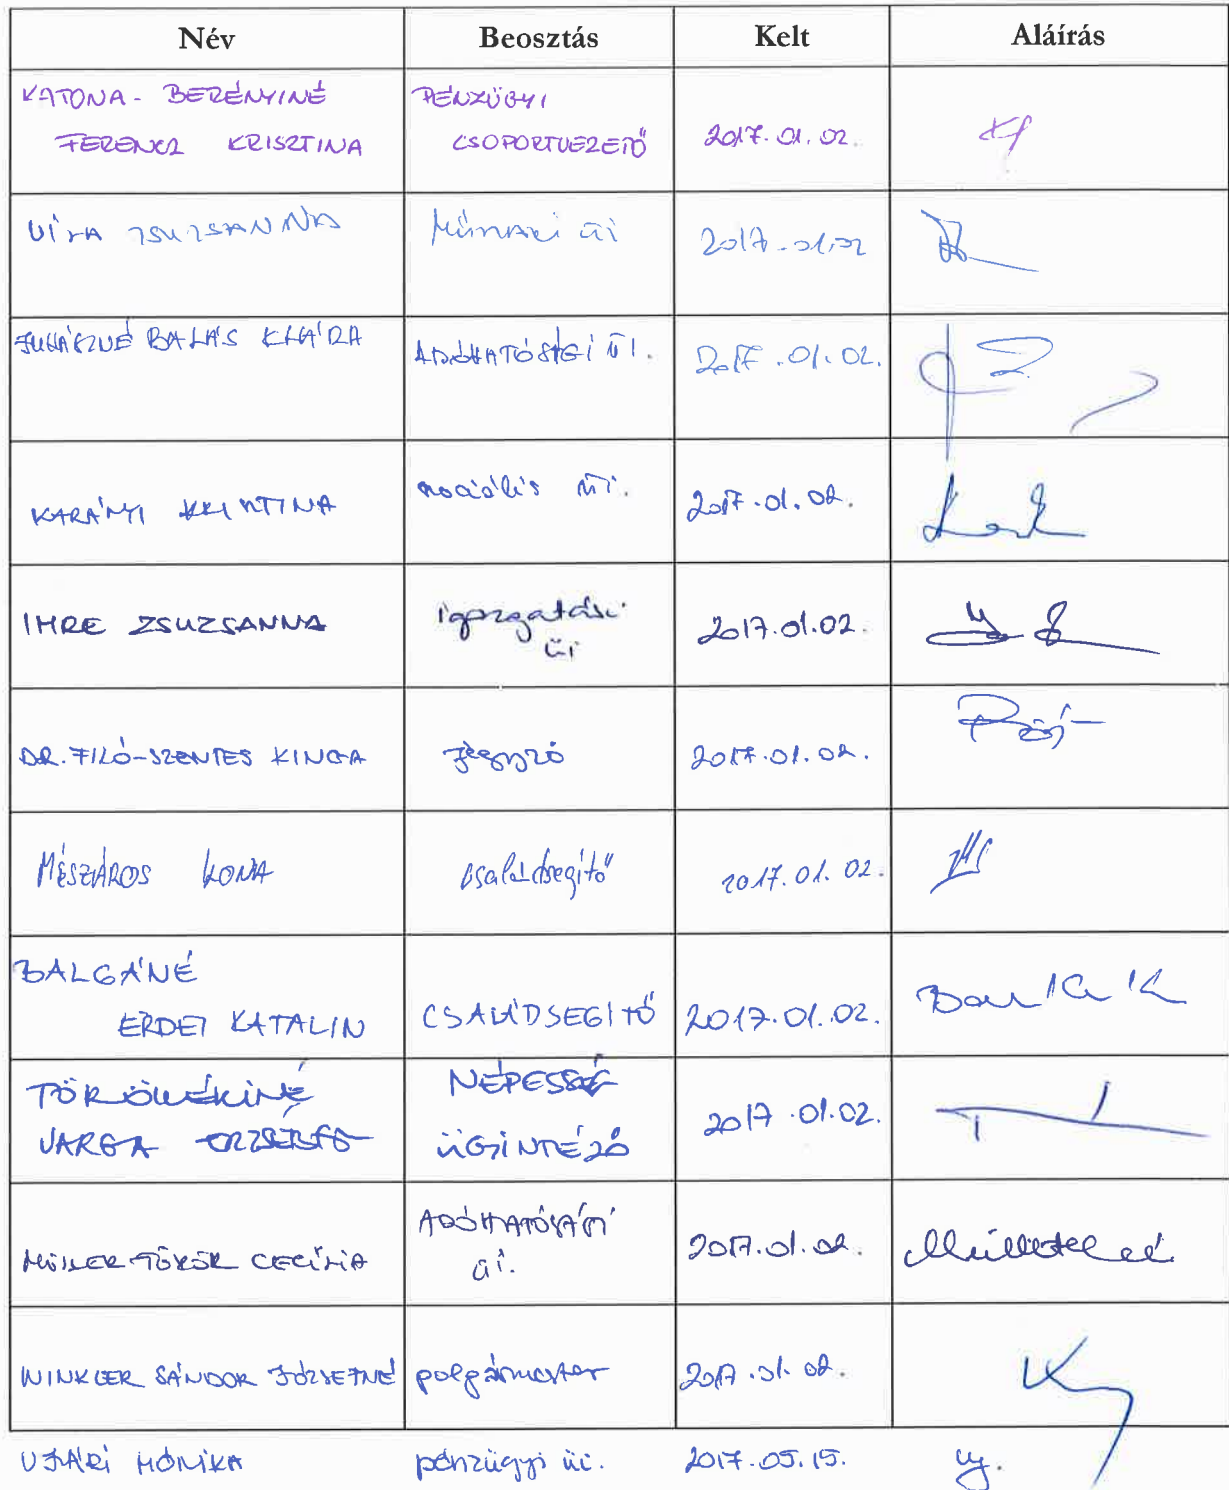 Név Beosztás Kelt Aláírás
KATONA-BERÉNYINÉ PÉNZÜGYI
FERENCZ KRISZTINA CSOPORTVEZETŐ 2017.01.02.
ZSUZSANNA Műszaki üi 2017.01.02
JUHÁSZNÉ BALÁS KLÁRA ADÓHATÓSÁGI ÜI. 2017.01.02.
KARÁNYI KRISZTINA szociális üi. 2017.01.02.
IMRE ZSUZSANNA igazgatási 2017.01.02.
üi
DR. FILÓ-SZENTES KINGA Jegyző 2017.01.02.
MÉSZÁROS ILONA családsegítő 2017.01.02.
BALGÁNÉ
ERDEI KATALIN CSALÁDSEGÍTŐ 2017.01.02.
TÖRÖKNÉ NÉPESSÉG
VARGA ERZSÉBET ÜGYINTÉZŐ 2017.01.02.
ADÓHATÓSÁGI
MÜLLER-TÖRÖK CECÍLIA üi. 2017.01.02.
WINKLER SÁNDOR JÓZSEFNÉ polgármester 2017.01.02.
UJVÁRI MÓNIKA pénzügyi üi. 2017.05.15.